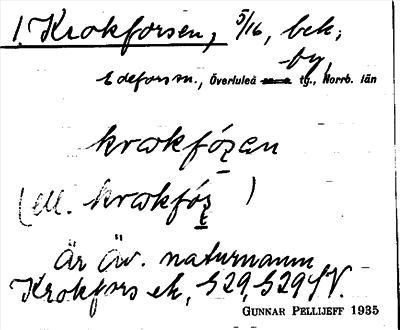 1. Krokforsen, 5/16, bek.
by,
Edeforssn., Överluleå tg., Norrb. län
krωkfózen
(ell. krωkfóz)
Är äv. naturnamn
Krokfors ek, S29, S29 f V.
GUNNAR PELLIJEFF 1935